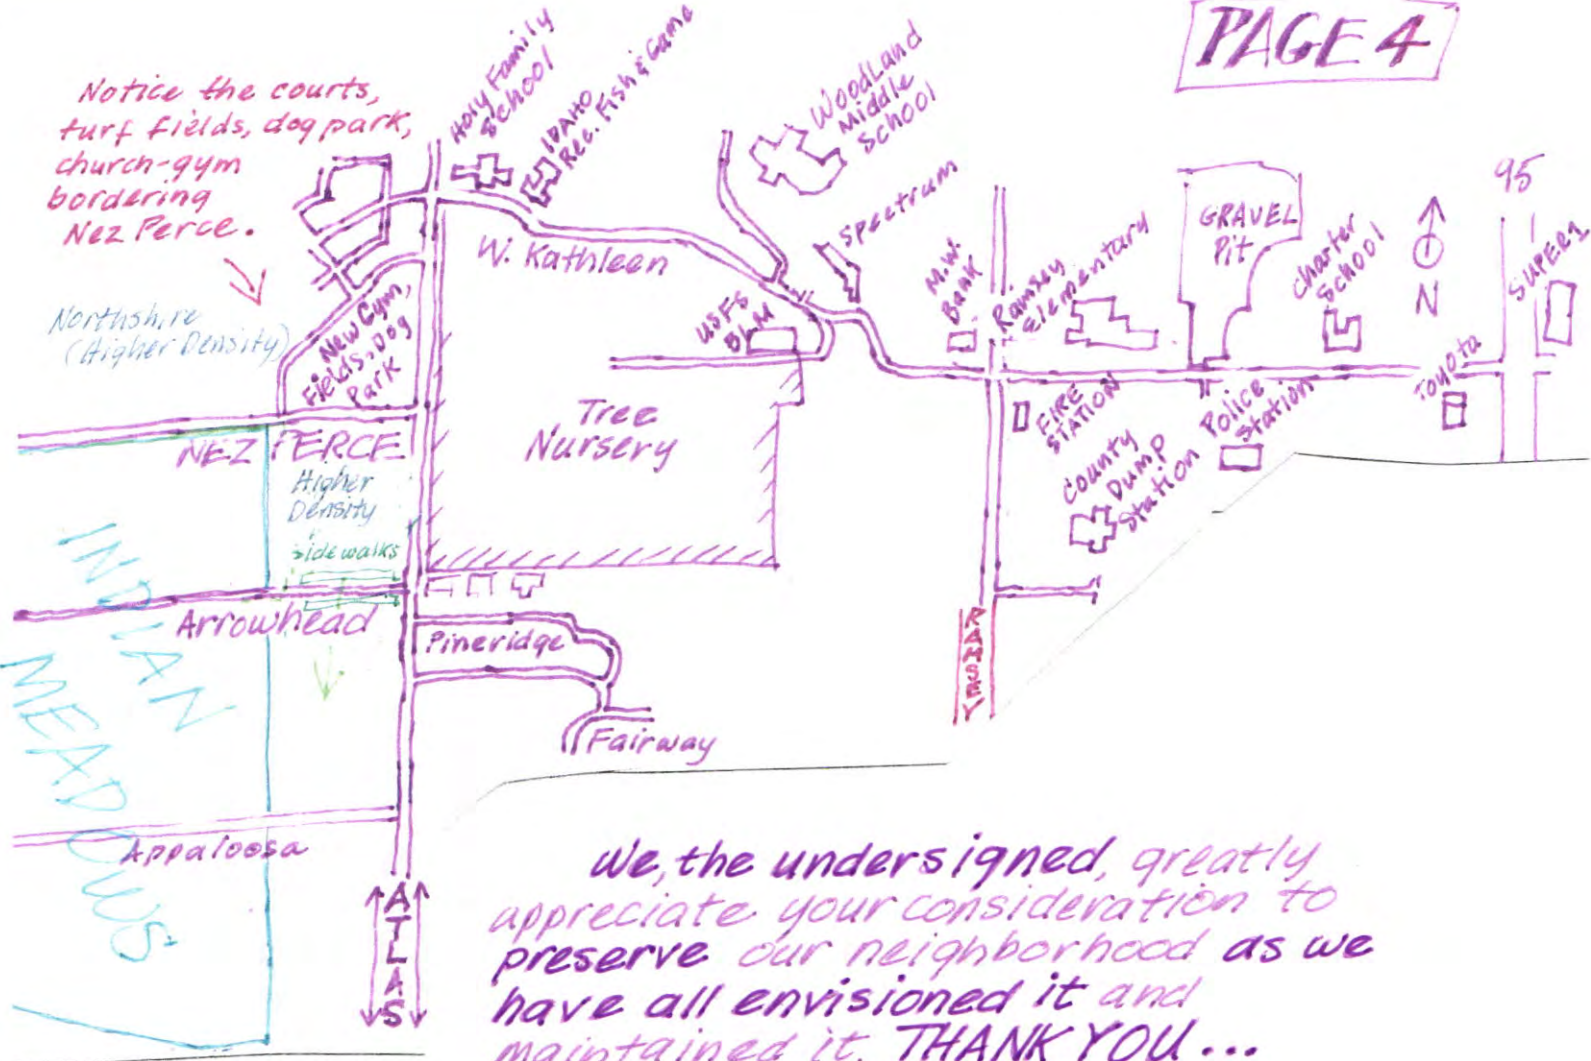 PAGE 4
Notice the courts,
turf fields, dog park,
church-gym
bordering
Nez Perce.
Holy Family
School
IDAHO
Rec. Fish & Game
Woodland
Middle
School
Spectrum
M.W.
Bank
Ramsey
Elementary
GRAVEL
Pit
Charter
School
N
95
SUPER 1
Northshire
(Higher Density)
New Gym,
Fields, Dog
Park
W. Kathleen
USFS
BLM
Toyota
FIRE
STATION
Police
Station
County
Dump
Station
Tree
Nursery
NEZ PERCE
Higher
Density
sidewalks
Arrowhead
Pineridge
Fairway
RAMSEY
INDIAN
MEADOWS
Appaloosa
ATLAS
We, the undersigned, greatly
appreciate your consideration to
preserve our neighborhood as we
have all envisioned it and
maintained it. THANK YOU...